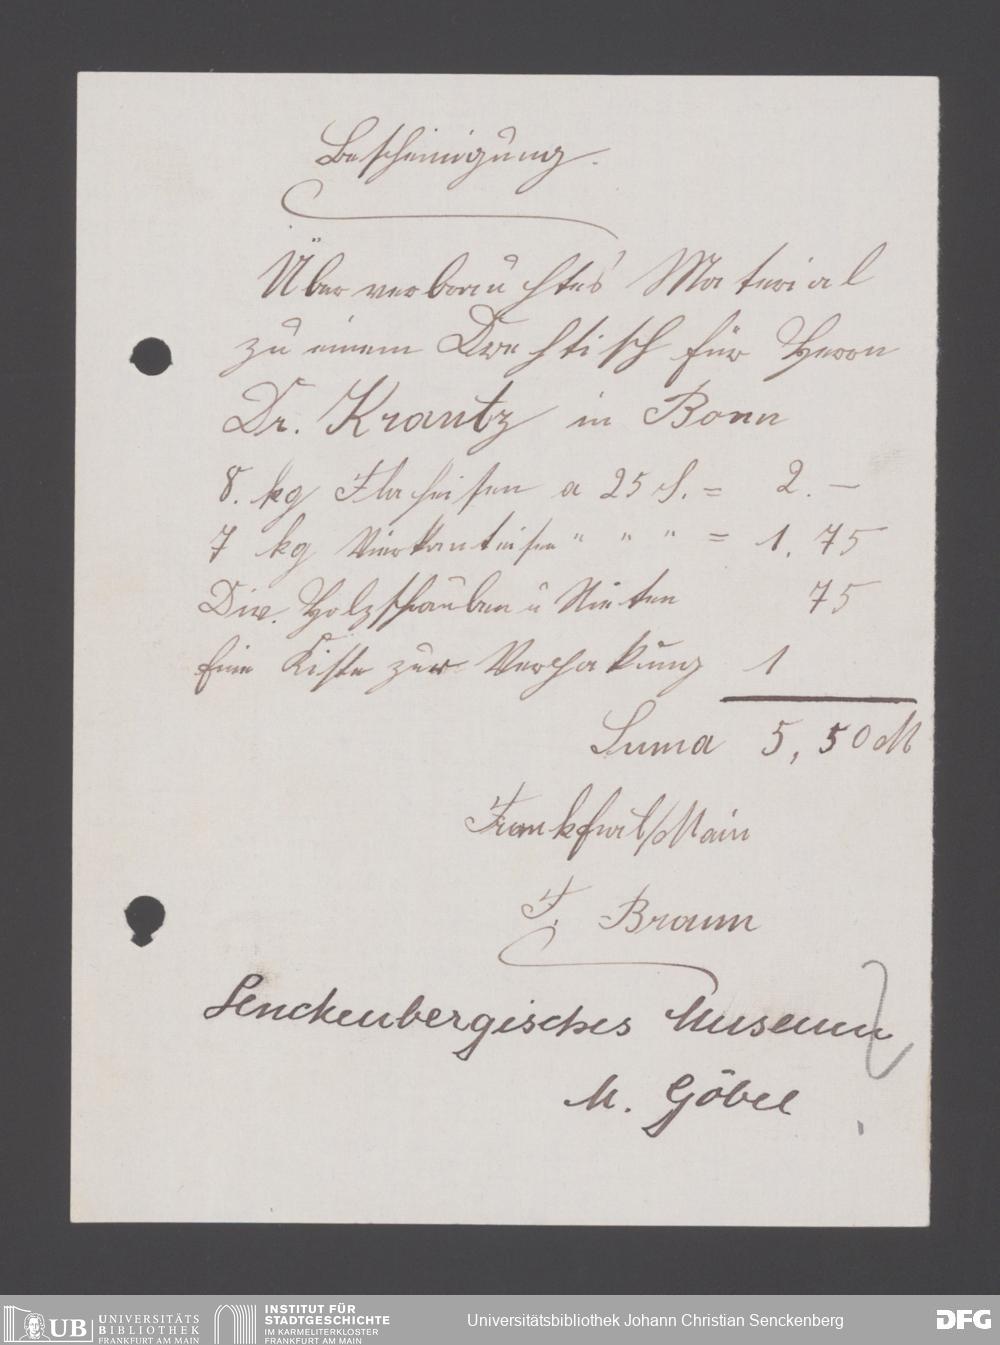 Bescheinigung.
Über verbrauchtes Material
zu einem Drehtisch für Herrn
Dr. Krantz in Bonn
8. kg Flacheisen a 25 d. = 2. —
7 kg Vierkanteisen " " " = 1.75
Div. Holzschrauben u Nieten 75
Eine Kiste zur Verpakung 1
Suma 5,50 M
Frankfurt/Main
F. Braun
Senckenbergisches Museum
M. Göbel
UB UNIVERSITÄTS
BIBLIOTHEK
FRANKFURT AM MAIN
INSTITUT FÜR
STADTGESCHICHTE
IM KARMELITERKLOSTER
FRANKFURT AM MAIN
Universitätsbibliothek Johann Christian Senckenberg
DFG